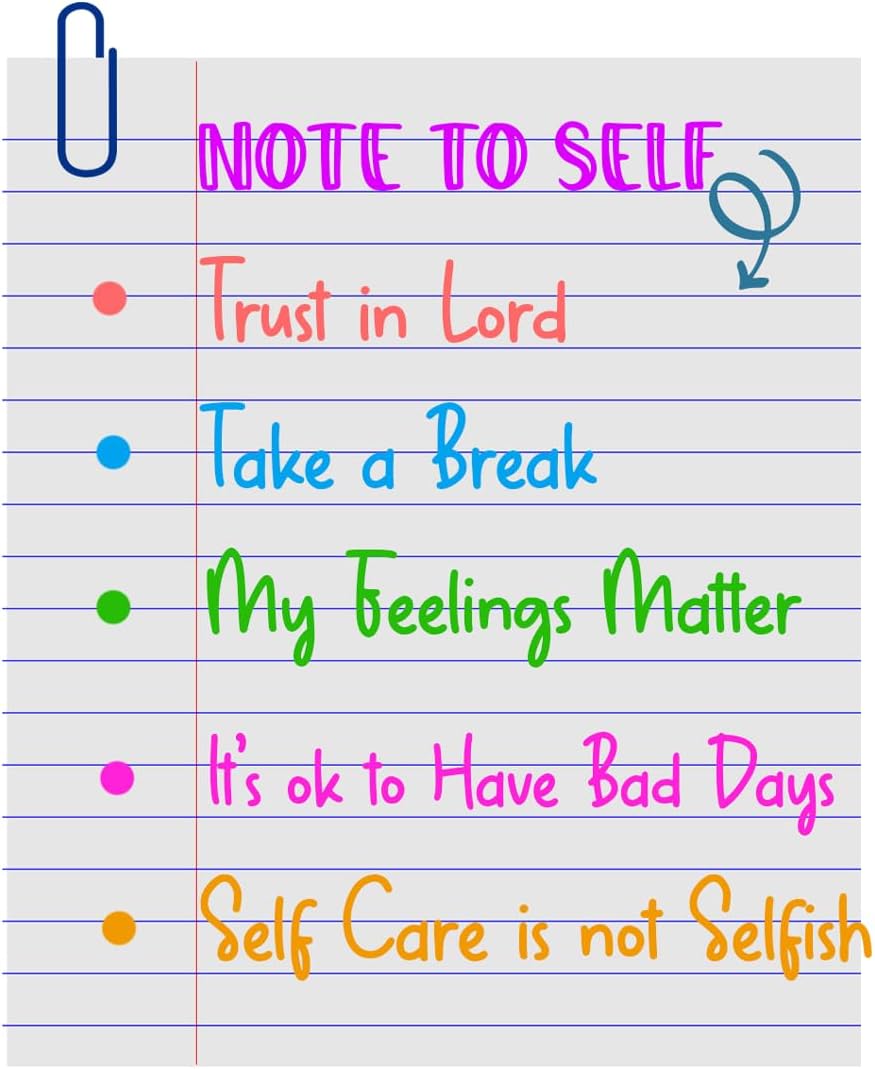 NOTE TO SELF
Trust in Lord
Take a Break
My Feelings Matter
It's ok to Have Bad Days
Self Care is not Selfish